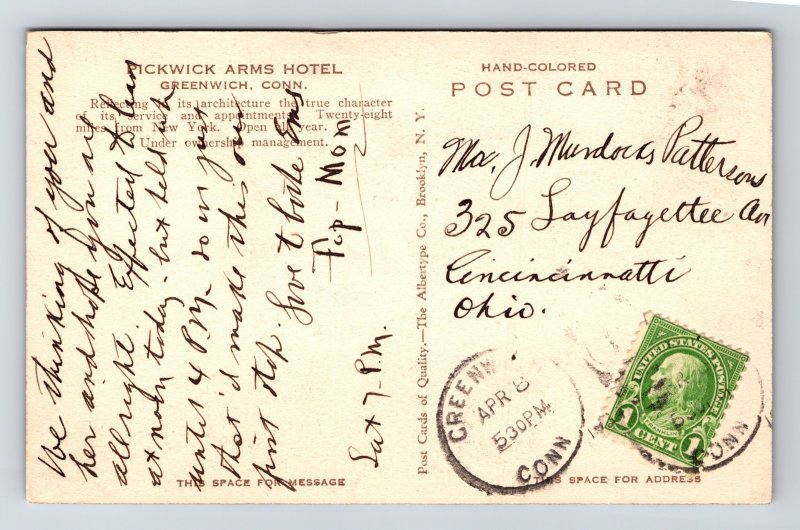 PICKWICK ARMS HOTEL
GREENWICH, CONN.
Reflecting in its architecture the true character
of its service and appointments. Twenty-eight
miles from New York. Open all year.
Under ownership management.
HAND-COLORED
POST CARD
We thinking of you and
her and hope you are
all right. Expected to leave
at noon today - but held up
until 4 PM. so in just
that I'd make this our
first stop. Love to both
Pop - Mom
Sat 7 - P.M.
Post Cards of Quality.—The Albertype Co., Brooklyn, N. Y.
J. Murdocks Pattersons
325 Layfayettee Av
Cincincinnatti
Ohio.
GREENW
APR 8
530PM
CONN
UNITED STATES POSTAGE
FRANKLIN
1 CENT 1
CONN
THIS SPACE FOR MESSAGE
THIS SPACE FOR ADDRESS